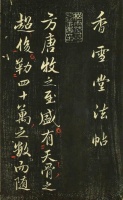 香雪堂法帖
方唐牧之至盛有天骨之
超俊勒四十萬之數而隨